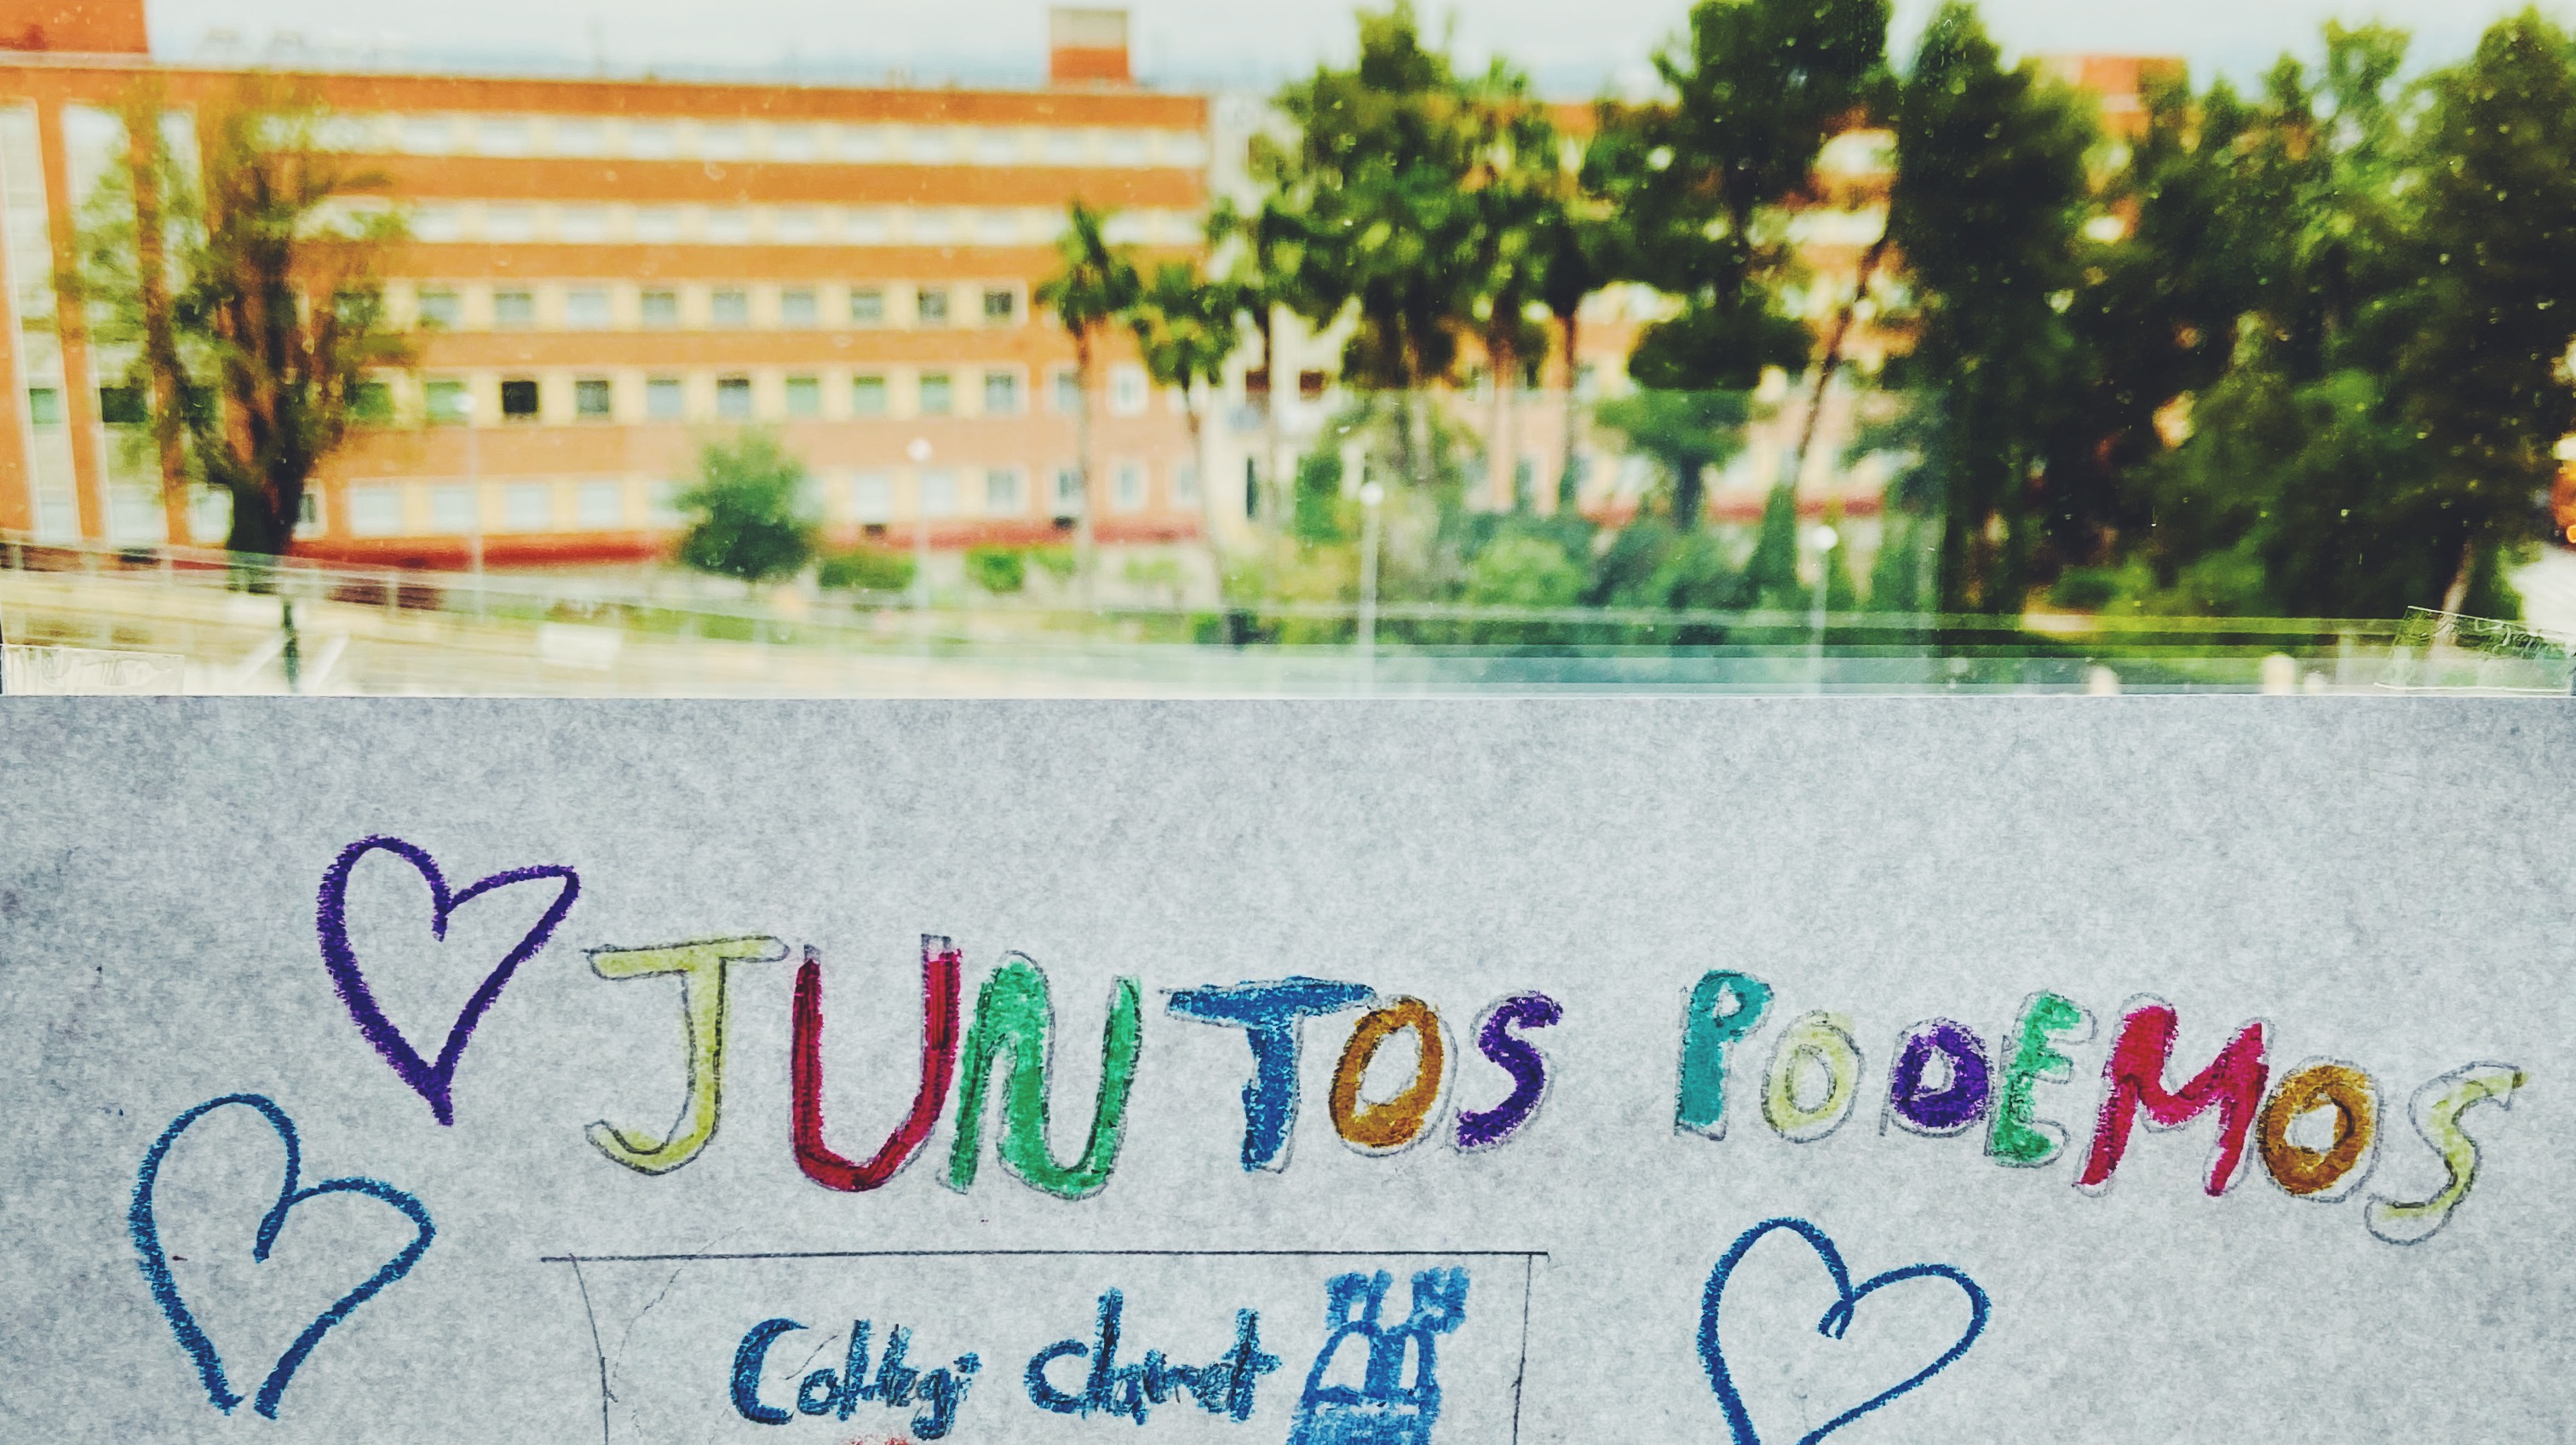 JUNTOS PODEMOS
Col·legi Claret